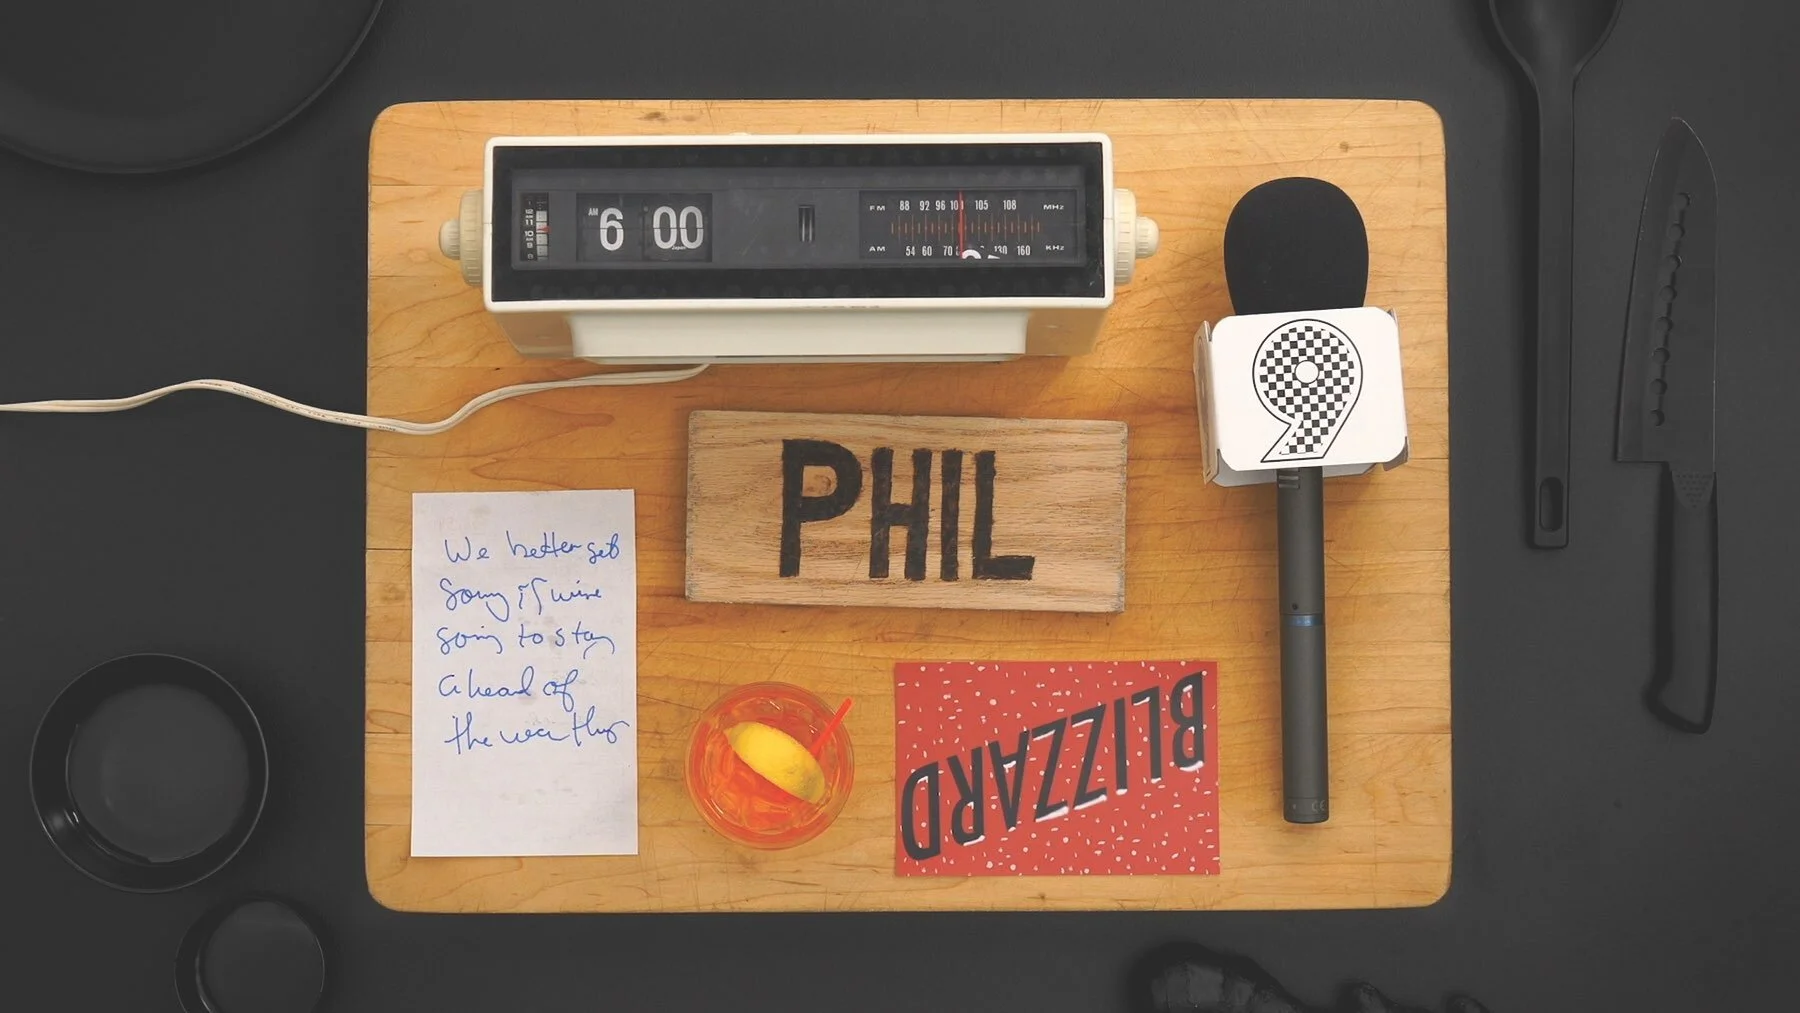 12
11
10
9
8
AM 6 00
Japan
FM 88 92 96 100 105 108 MHz
AM 54 60 70 130 160 KHz
9
PHIL
We better get
going if we're
going to stay
ahead of
the weather
BLIZZARD
CE